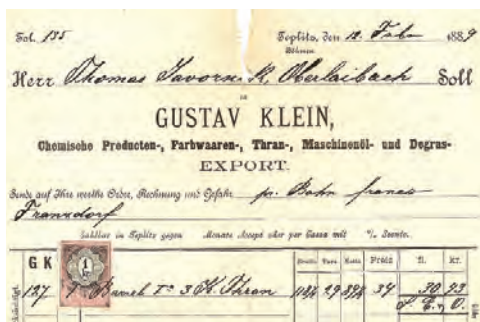 Fol. 135 Teplitz, den 12. Febr 1889
Böhmen.
Herr Thomas Oberlaibach Soll
GUSTAV KLEIN,
Chemische Producten-, Farbwaaren-, Thran-, Maschinenöl- und Degras-
EXPORT.
Sende auf Ihre werthe Ordre, Rechnung und Gefahr pr. Bahn franco
Franzdorf
Zahlbar in Teplitz gegen Monate Accept oder per Cassa mit % Sconto.
Brutto Tara Netto Preis fl. kr.
G K 1 kr
127 1 Barrel Ia 3 K. Thran 29 34 30 93
S. E. & O.